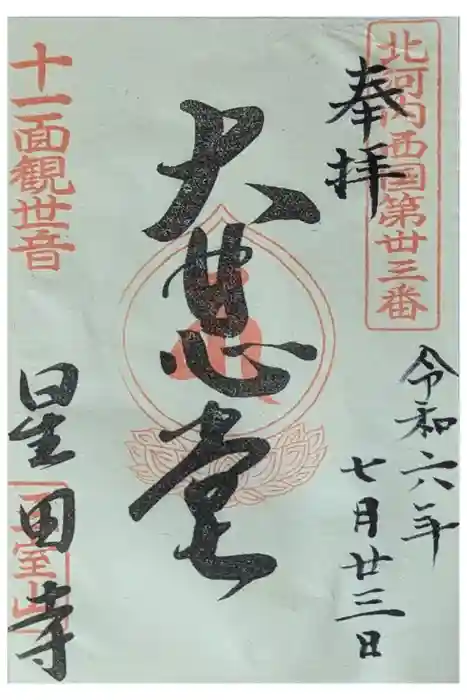 北河内西国第卅三番
奉拝
令和六年
七月廿三日
大悲堂
十一面観世音
星田寺